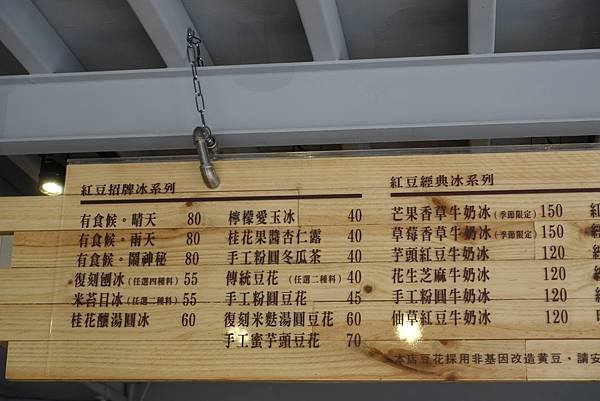 紅豆招牌冰系列
有食候。晴天 80
有食候。雨天 80
有食候。鬧神秘 80
復刻刨冰(任選四種料) 55
米苔目冰(任選二種料) 55
桂花釀湯圓冰 60
檸檬愛玉冰 40
桂花果醬杏仁露 40
手工粉圓冬瓜茶 40
傳統豆花(任選二種料) 40
手工粉圓豆花 45
復刻米麩湯圓豆花 60
手工蜜芋頭豆花 70
紅豆經典冰系列
芒果香草牛奶冰(季節限定) 150
草莓香草牛奶冰(季節限定) 150
芋頭紅豆牛奶冰 120
花生芝麻牛奶冰 120
手工粉圓牛奶冰 120
仙草紅豆牛奶冰 120
本店豆花採用非基因改造黃豆・請安